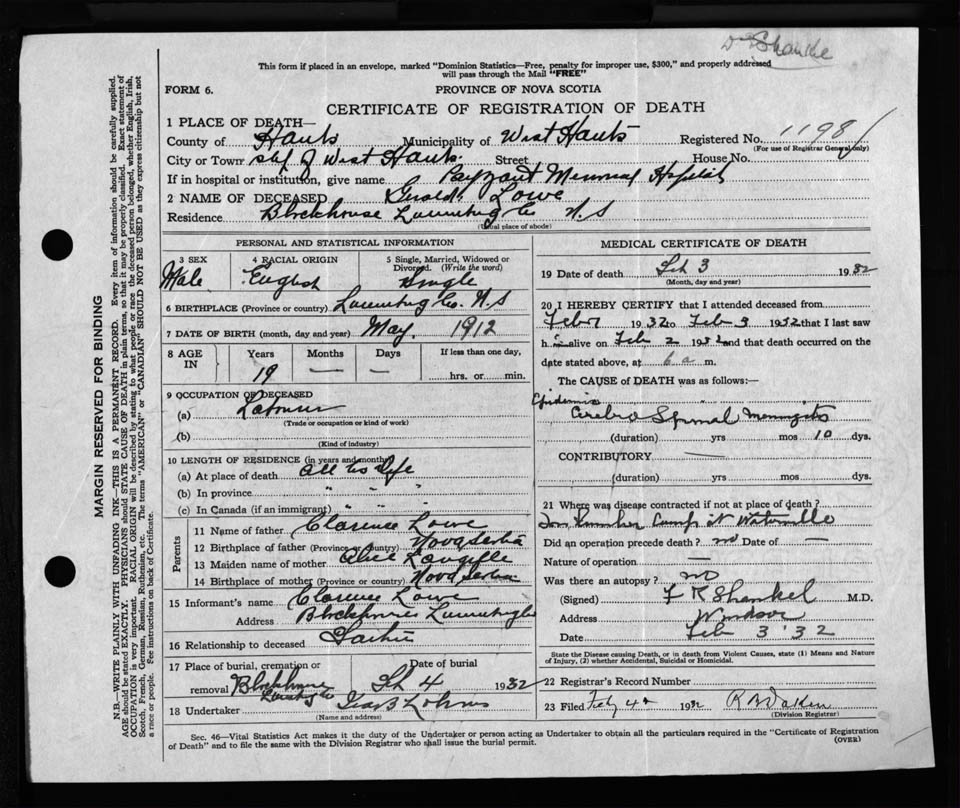 Dr Shankel
This form if placed in an envelope, marked "Dominion Statistics—Free, penalty for improper use, $300," and properly addressed
will pass through the Mail "FREE"
FORM 6. PROVINCE OF NOVA SCOTIA
CERTIFICATE OF REGISTRATION OF DEATH
1 PLACE OF DEATH—
County of Hants Municipality of West Hants Registered No. 1198
(For use of Registrar General only)
City or Town of West Hants Street House No.
If in hospital or institution, give name Payzant Memorial Hospital
2 NAME OF DECEASED Lowe
Residence Blockhouse Lunenburg Co N.S
(Usual place of abode)
PERSONAL AND STATISTICAL INFORMATION
3 SEX 4 RACIAL ORIGIN 5 Single, Married, Widowed or Divorced. (Write the word)
Male English Single
6 BIRTHPLACE (Province or country) Lunenburg Co. N.S
7 DATE OF BIRTH (month, day and year) May, 1912
8 AGE IN Years Months Days If less than one day,
19 — — hrs. or min.
9 OCCUPATION OF DECEASED
(a) Labourer
(Trade or occupation or kind of work)
(b)
(Kind of industry)
10 LENGTH OF RESIDENCE (in years and months)
(a) At place of death All his life
(b) In province " " "
(c) In Canada (if an immigrant) " " "
Parents
11 Name of father Clarence Lowe
12 Birthplace of father (Province or country) Nova Scotia
13 Maiden name of mother Langille
14 Birthplace of mother (Province or country) Nova Scotia
15 Informant's name Clarence Lowe
Address Blockhouse Lunenburg Co
16 Relationship to deceased Father
17 Place of burial, cremation or removal Blockhouse Lunenburg Co Date of burial Feb 4 1932
18 Undertaker
(Name and address)
MEDICAL CERTIFICATE OF DEATH
19 Date of death Feb 3 1932
(Month, day and year)
20 I HEREBY CERTIFY that I attended deceased from
1932 to Feb 3 1932 that I last saw
h alive on Feb 2 1932 and that death occurred on the
date stated above, at 6 a m.
The CAUSE of DEATH was as follows:—
Epidemic
Cerebro Spinal Meningitis
(duration) yrs mos 10 dys.
CONTRIBUTORY —
(duration) yrs mos dys.
21 Where was disease contracted if not at place of death?
Lumber Camp at Waterville
Did an operation precede death? no Date of —
Nature of operation —
Was there an autopsy? no
(Signed) F R Shankel M.D.
Address Windsor
Date Feb 3 '32
State the Disease causing Death, or in death from Violent Causes, state (1) Means and Nature
of Injury, (2) whether Accidental, Suicidal or Homicidal.
22 Registrar's Record Number
23 Filed 1932
(Division Registrar)
Sec. 46—Vital Statistics Act makes it the duty of the Undertaker or person acting as Undertaker to obtain all the particulars required in the "Certificate of Registration
of Death" and to file the same with the Division Registrar who shall issue the burial permit. (OVER)
MARGIN RESERVED FOR BINDING
N.B.—WRITE PLAINLY WITH UNFADING INK—THIS IS A PERMANENT RECORD. Every item of information should be carefully supplied.
AGE should be stated EXACTLY. PHYSICIANS should STATE CAUSE OF DEATH in plain terms, so that it may be properly classified. Exact statement of
OCCUPATION is very important. RACIAL ORIGIN will be described by stating to what people or race the deceased person belonged, whether English, Irish,
Scotch, French, German, Russian, Ruthenian, etc. The terms "AMERICAN" or "CANADIAN" SHOULD NOT BE USED as they express citizenship but not
a race or people. See instructions on back of Certificate.